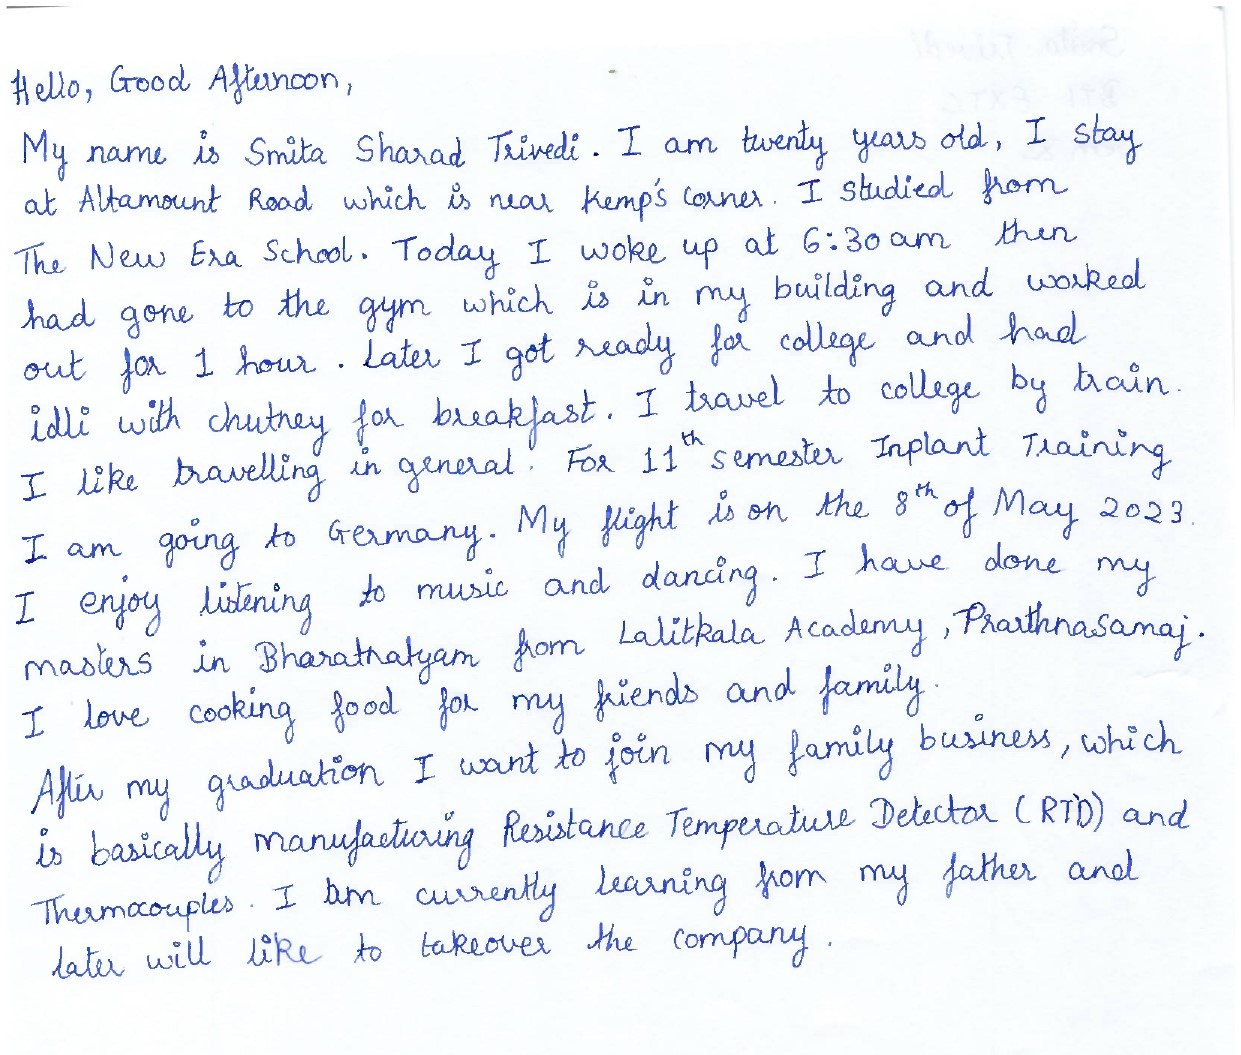 Hello, Good Afternoon,
My name is Smita Sharad Trivedi. I am twenty years old, I stay
at Altamount Road which is near Kemp's Corner. I studied from
The New Era School. Today I woke up at 6:30am then
had gone to the gym which is in my building and worked
out for 1 hour. Later I got ready for college and had
idli with chutney for breakfast. I travel to college by train.
I like travelling in general. For 11th semester Inplant Training
I am going to Germany. My flight is on the 8th of May 2023.
I enjoy listening to music and dancing. I have done my
masters in Bharatnatyam from Lalitkala Academy, Prarthnasamaj.
I love cooking food for my friends and family.
After my graduation I want to join my family business, which
is basically manufacturing Resistance Temperature Detector (RTD) and
Thermocouples. I am currently learning from my father and
later will like to takeover the company.